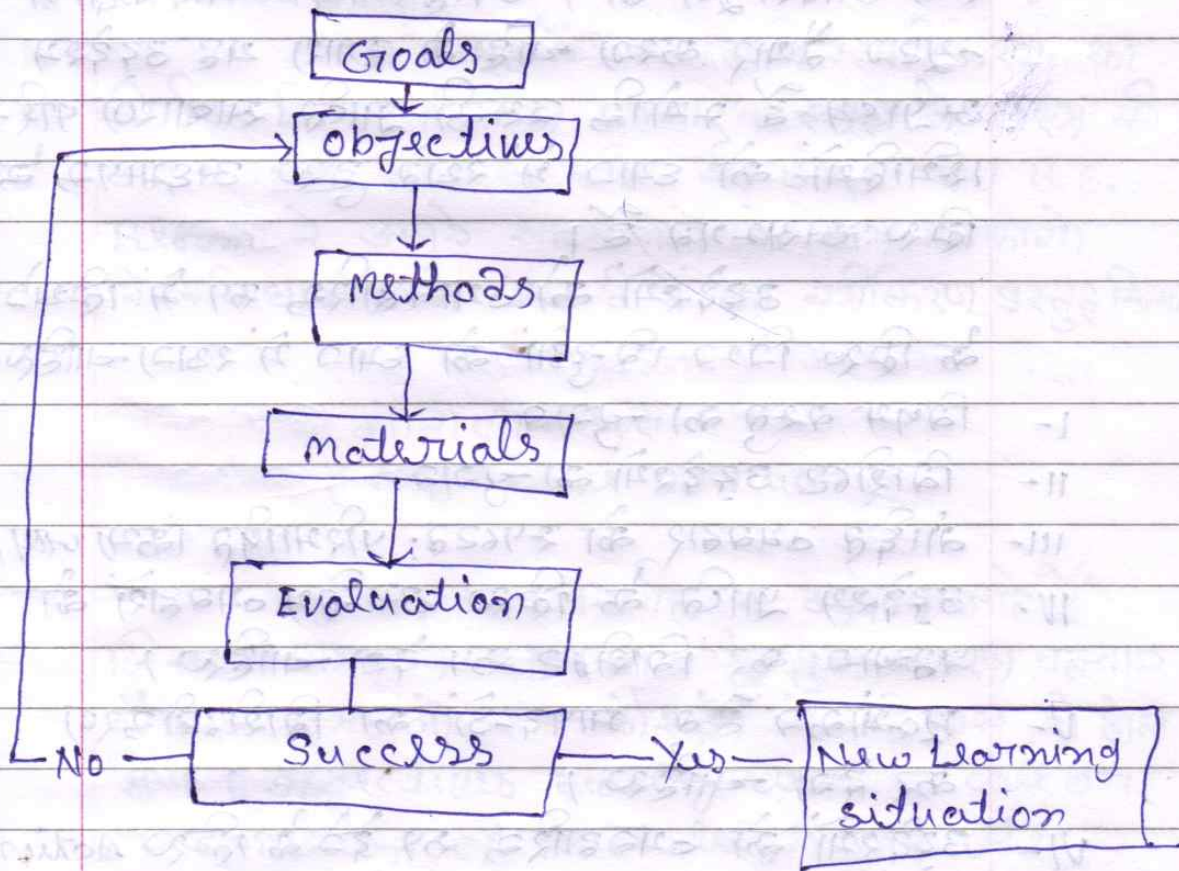 Goals
Objectives
Methods
Materials
Evaluation
No
Success
Yes
New Learning
situation